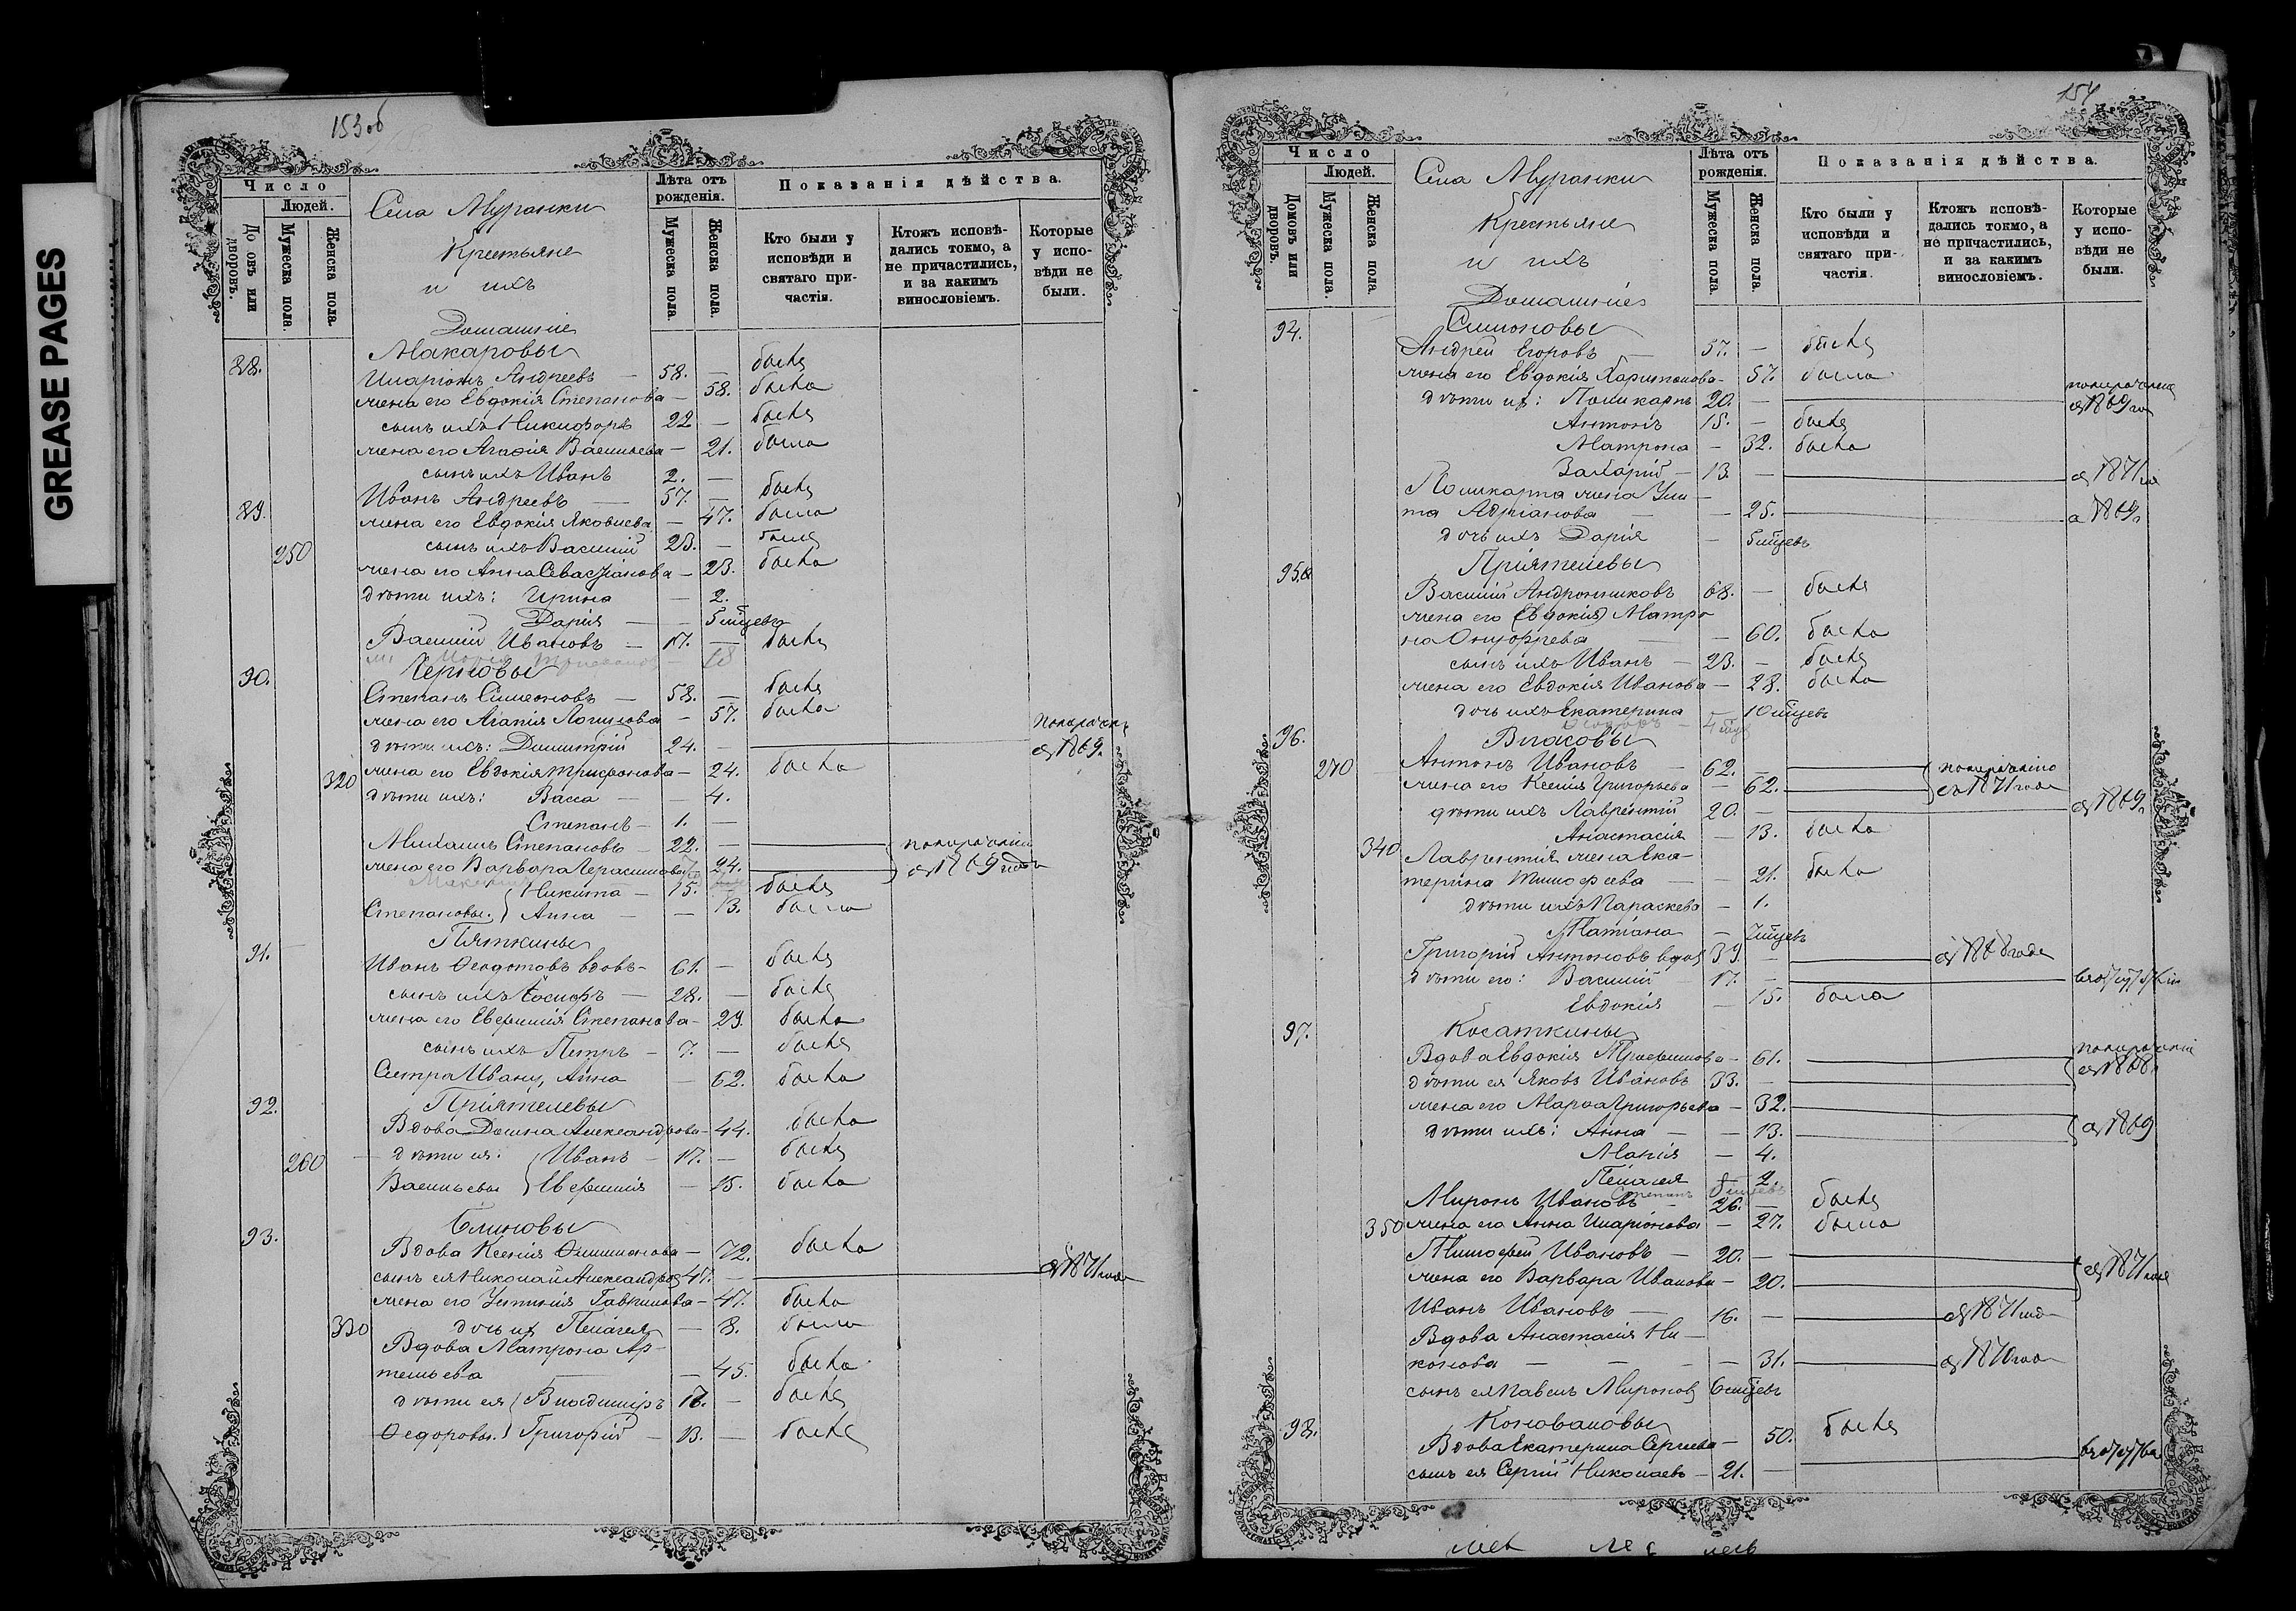 GREASE PAGES
153 об
Число
Людей.
До овъ или дворовъ.
Мужеска пола.
Женска пола.
Села Муранки
Крестьяне
и ихъ
Домашніе
Лѣта отъ рожденія.
Мужеска пола.
Женска пола.
Показанія дѣйства.
Кто были у исповѣди и святаго при-частія.
Ктожъ исповѣ-дались токмо, а не причастились, и за какимъ винословіемъ.
Которые у испо-вѣди не были.
Макаровы
88. Иларіонъ Андреевъ — 58. — былъ
жена его Евдокія Степанова — 58. была
сынъ ихъ Никифоръ 22 — былъ
жена его Агафія Васильева — 21. была
сынъ ихъ Иванъ 2. —
89. Иванъ Андреевъ — 57. — былъ
жена его Евдокія Яковлева — 47. была
250 сынъ ихъ Василій 23. — былъ
жена его Анна Севастіанова — 23. была
дѣти ихъ: Ирина — 2.
Дарія — 5 мѣсцевъ
Василій Ивановъ — 17. — былъ
18
Черновы
90. Степанъ Симеоновъ — 58. — былъ
жена его Агапія Логинова — 57. была
дѣти ихъ: Димитрій 24. — съ 1869.
320 жена его Евдокія Трифонова — 24. была
дѣти ихъ: Васса — — 4.
Степанъ — 1. —
Михаилъ Степановъ — 22. —
жена его Варвара Герасимова 24. съ 1869 года
Никита — 15. былъ
Степановы. Анна — — 13. была
Пяткины
91. Иванъ Ѳеодотовъ вдовъ — 61. — былъ
сынъ ихъ Іосифъ — 28. — былъ
жена его Евфимія Степанова — 29. была
сынъ ихъ Петръ — 7. — былъ
Сестра Ивану, Анна — 62. была
Пріятелевы
92. Вдова Домна Александрова — 44. была
260 дѣти ея: Иванъ — 17. — былъ
Васильевы Евфимія — 15. была
Блиновы
93. Вдова Ксенія Филимонова — 72. была
сынъ ея Николай Александровъ 47. — съ 1871 года
жена его Устинія Гаврилова — 47. была
330 дочь ихъ Пелагея — 8. была
Вдова Матрона Ар-
темьева — 45. была
дѣти ея Владиміръ 17. — былъ
Ѳедоровы. Григорій — 13. — былъ
154
Число
Людей.
Домовъ или дворовъ.
Мужеска пола.
Женска пола.
Села Муранки
Крестьяне
и ихъ
Домашніе
Лѣта отъ рожденія.
Мужеска пола.
Женска пола.
Показанія дѣйства.
Кто были у исповѣди и святаго при-частія.
Ктожъ исповѣ-дались токмо, а не причастились, и за какимъ винословіемъ.
Которые у испо-вѣди не были.
94. Симоновы
Андрей Егоровъ — 57. — былъ
жена его Евдокія Харитонова — 57. была
дѣти ихъ: Поликарпъ 20. — съ 1869 года
Антонъ 15. — былъ
Матрона — 32. была
Захарій — 13. — съ 1871 года
Поликарпа жена Ули-
та Адріанова — 25. съ 1869.
дочь ихъ Дарія — 5 мѣсцевъ
Пріятелевы
95. Василій Андрониковъ 68. — былъ
жена его (Евдокія) Матро
на Онуфріева — 60. была
сынъ ихъ Иванъ — 23. — былъ
жена его Евдокія Иванова — 28. была
дочь ихъ Екатерина — 10 мѣсцевъ
96. Власовы
270 Антонъ Ивановъ — 62. —
жена его Ксенія Григорьева — 62. съ 1871 года
дѣти ихъ Лаврентій 20. — съ 1869.
340 Анастасія — 13. была
Лаврентія жена Ека-
терина Тимофеева — 21. была
дѣти ихъ Параскева — 1.
Татіана — 7 мѣсцевъ
Григорій Антоновъ вдов 39. — съ 1868 года
дѣти его: Василій — 17. — въ отсутствіи
Евдокія — 15. была
97. Косаткины
Вдова Евдокія Трофимова — 61. съ 1868
дѣти ея Яковъ Ивановъ 33. —
жена его Марѳа Григорьева — 32.
дѣти ихъ: Анна — — 13. съ 1869
Марія — 4.
Пелагея — 2.
Степанъ
Миронъ Ивановъ — 26. — былъ
350 жена его Анна Иларіонова — 27. была
Тимофей Ивановъ — 20. —
жена его Варвара Иванова — 20. съ 1871 года
Иванъ Ивановъ — 16. — съ 1871 года
Вдова Анастасія Ни-
конова — — — — 31. съ 1870 года
сынъ ея Павелъ Мироновъ 6 мѣсцевъ
98. Коноваловы
Вдова Екатерина Сергеева — 50. была
сынъ ея Сергій Николаевъ — 21. —